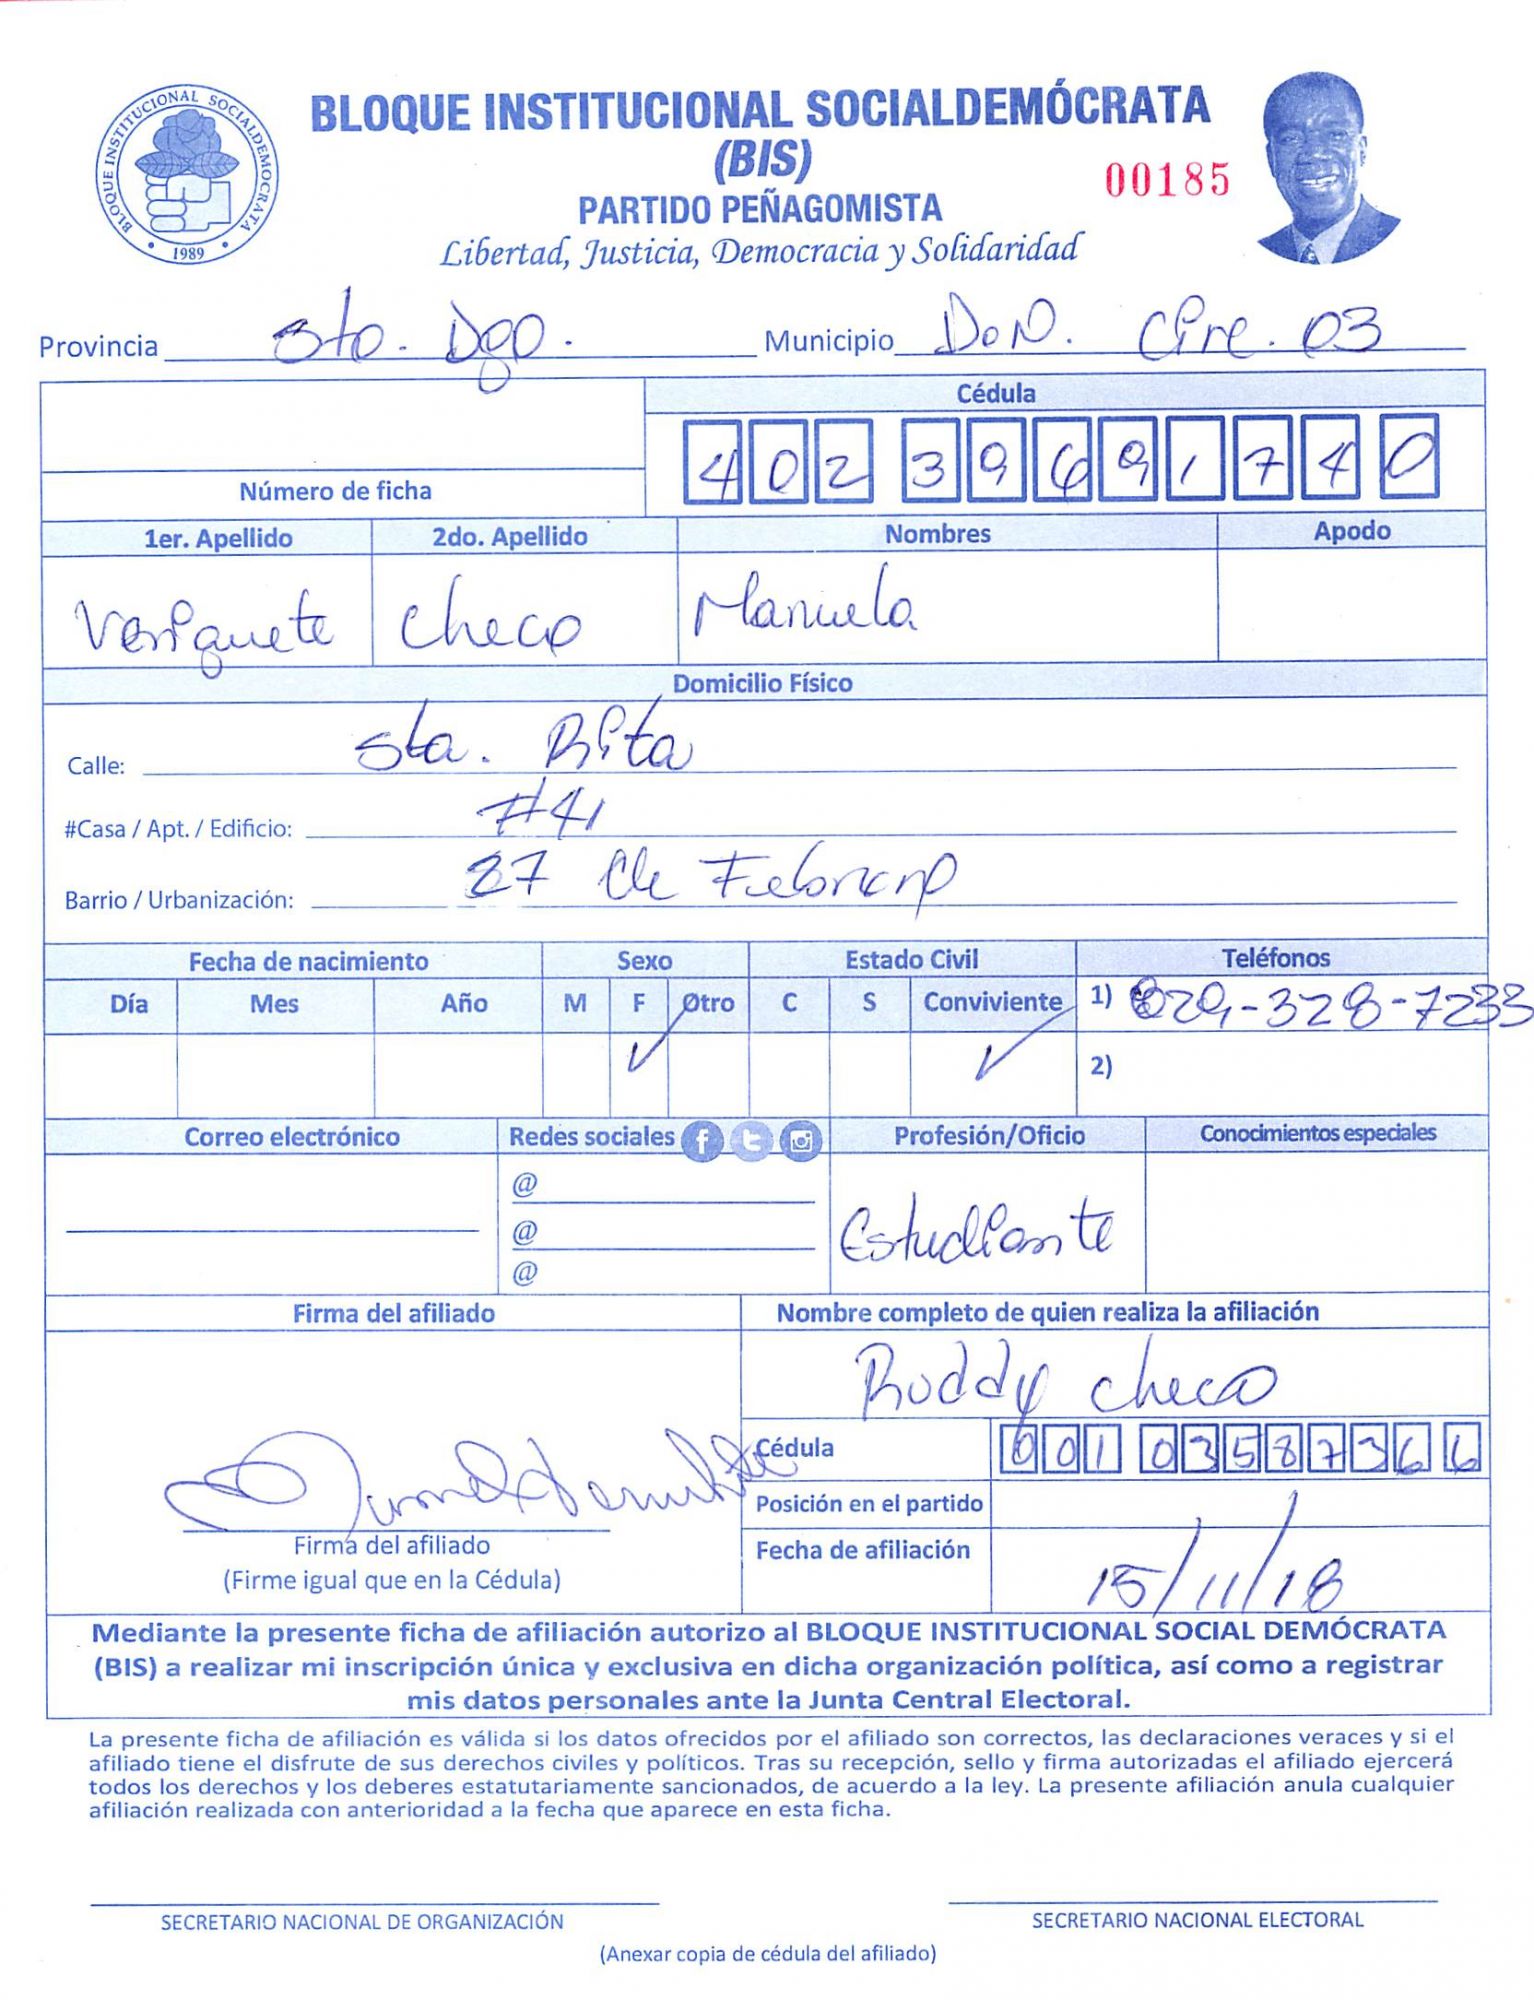 BLOQUE INSTITUCIONAL SOCIALDEMOCRATA
1989
BLOQUE INSTITUCIONAL SOCIALDEMÓCRATA
(BIS)
00185
PARTIDO PEÑAGOMISTA
Libertad, Justicia, Democracia y Solidaridad
Provincia Sto. Dgo. Municipio D.N. Circ. 03
Cédula
402 3969174 0
Número de ficha
1er. Apellido 2do. Apellido Nombres Apodo
Veriquete Checo Manuela
Domicilio Físico
Calle: Sta. Rita
#Casa / Apt. / Edificio: #41
Barrio / Urbanización: 27 de Febrero
Fecha de nacimiento Sexo Estado Civil Teléfonos
Día Mes Año M F Otro C S Conviviente 1) 829-328-7233
✓ ✓ 2)
Correo electrónico Redes sociales Profesión/Oficio Conocimientos especiales
@
@
@
Estudiante
Firma del afiliado Nombre completo de quien realiza la afiliación
Ruddy Checo
Cédula 001 0358736 6
Posición en el partido
Firma del afiliado
(Firme igual que en la Cédula)
Fecha de afiliación 15/11/18
Mediante la presente ficha de afiliación autorizo al BLOQUE INSTITUCIONAL SOCIAL DEMÓCRATA
(BIS) a realizar mi inscripción única y exclusiva en dicha organización política, así como a registrar
mis datos personales ante la Junta Central Electoral.
La presente ficha de afiliación es válida si los datos ofrecidos por el afiliado son correctos, las declaraciones veraces y si el
afiliado tiene el disfrute de sus derechos civiles y políticos. Tras su recepción, sello y firma autorizadas el afiliado ejercerá
todos los derechos y los deberes estatutariamente sancionados, de acuerdo a la ley. La presente afiliación anula cualquier
afiliación realizada con anterioridad a la fecha que aparece en esta ficha.
SECRETARIO NACIONAL DE ORGANIZACIÓN SECRETARIO NACIONAL ELECTORAL
(Anexar copia de cédula del afiliado)